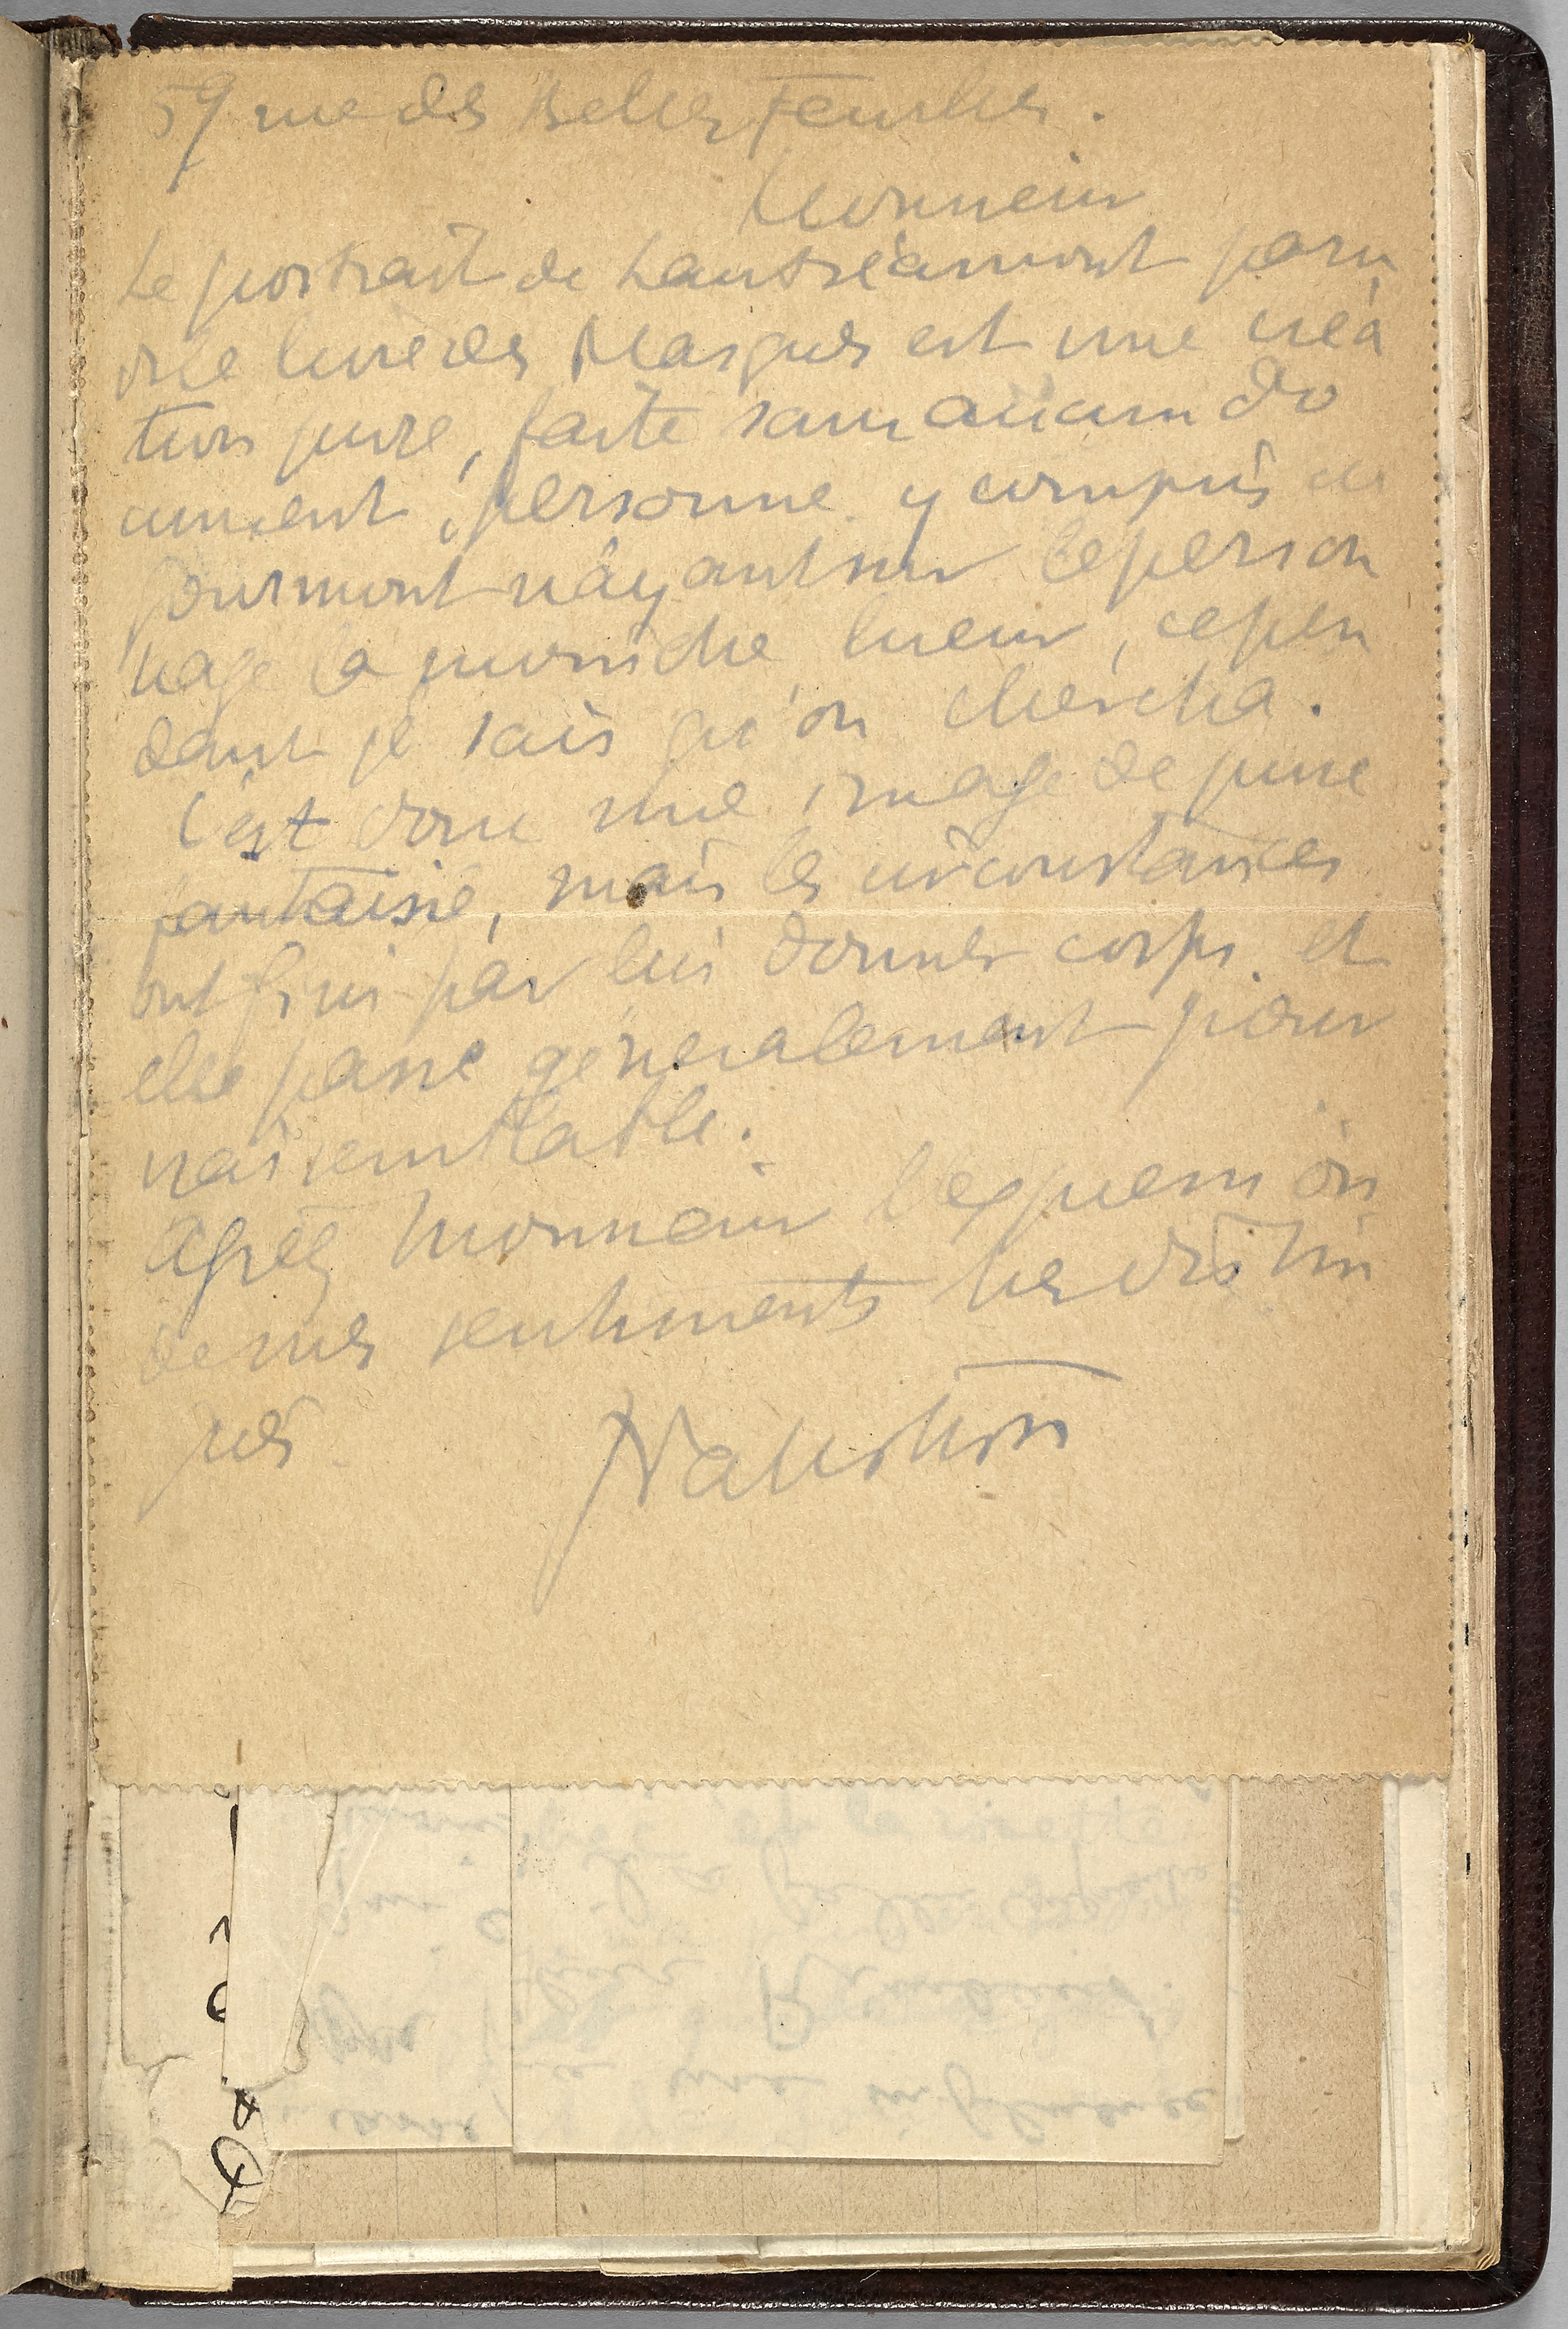 59 rue des Belles Feuilles.
Monsieur
Le portrait de Lautréamont paru
ds le livre des Masques est une créa
tion pure, faite sans aucun do
cument, personne y compris de
Gourmont n'ayant sur le person
nage la moindre lueur, cepen
dant je sais qu'on chercha.
C'est donc une image de pure
fantaisie, mais les circonstances
ont fini par lui donner corps et
elle passe généralement pour
vraisemblable.
Agréez Monsieur l'expression
de mes sentiments les distin
gués
Vallotton